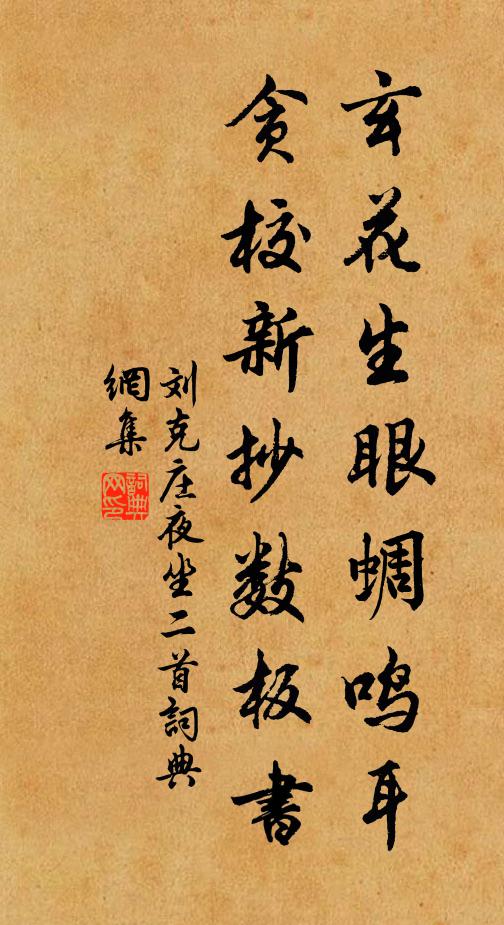 玄花生眼蜩鸣耳
贪校新抄数板書
刘克庄夜坐二首詞典
網集
詞典网印